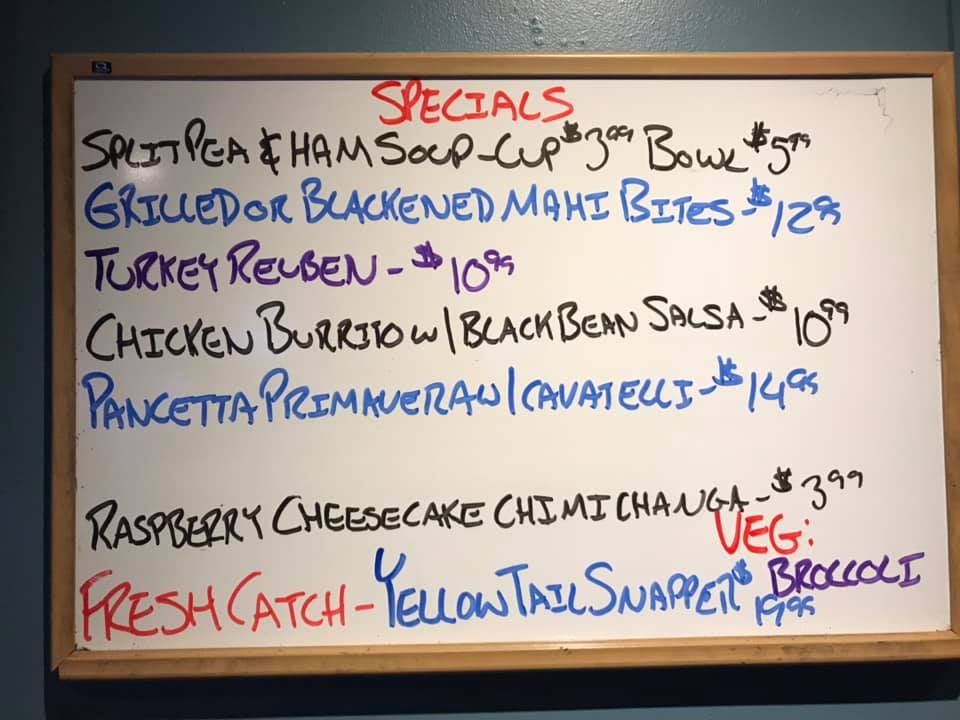 SPECIALS
SPLIT PEA & HAM SOUP - CUP $3.99 BOWL $5.99
GRILLED OR BLACKENED MAHI BITES - $12.95
TURKEY REUBEN - $10.95
CHICKEN BURRITO W/ BLACK BEAN SALSA - $10.99
PANCETTA PRIMAVERA W/ CAVATELLI - $14.95
RASPBERRY CHEESECAKE CHIMICHANGA - $3.99
VEG:
BROCCOLI
FRESH CATCH - YELLOW TAIL SNAPPER $19.95